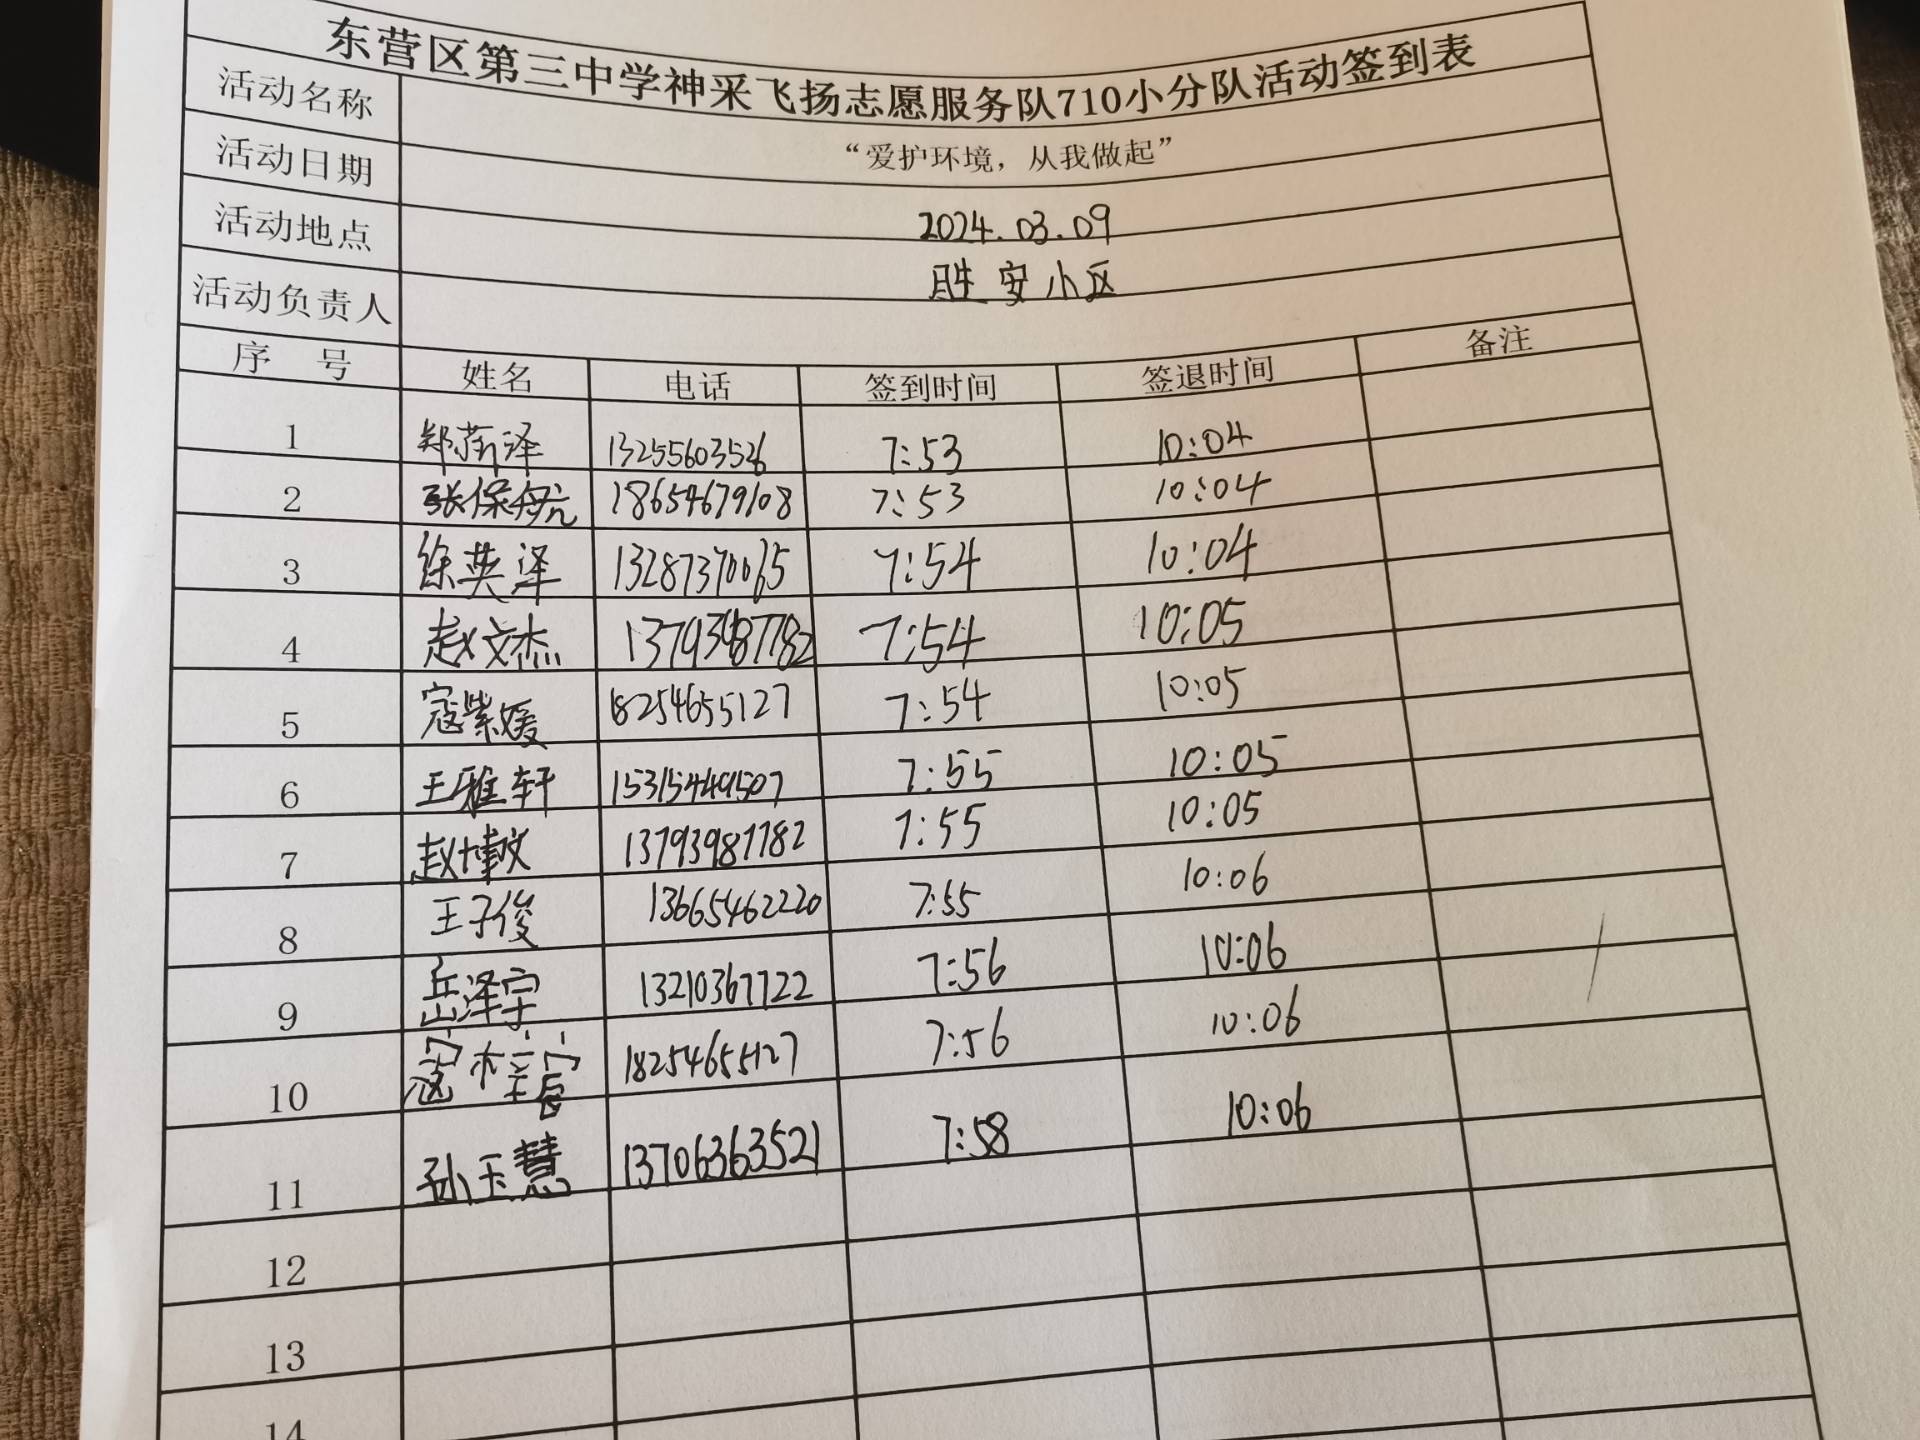 东营区第三中学神采飞扬志愿服务队710小分队活动签到表
活动名称 “爱护环境，从我做起”
活动日期 2024.03.09
活动地点 胜安小区
活动负责人
序 号 姓名 电话 签到时间 签退时间 备注
1 郑菏泽 13255603526 7:53 10:04
2 张保航 18654679108 7:53 10:04
3 徐英泽 13287370065 7:54 10:04
4 赵文杰 13793987782 7:54 10:05
5 寇紫媛 18254655127 7:54 10:05
6 王雅轩 7:55 10:05
7 赵博文 13793987782 7:55 10:05
8 王子俊 13665462220 7:55 10:06
9 岳泽宇 13210367722 7:56 10:06
10 18254655127 7:56 10:06
11 孙玉慧 13706363521 7:58 10:06
12
13
14